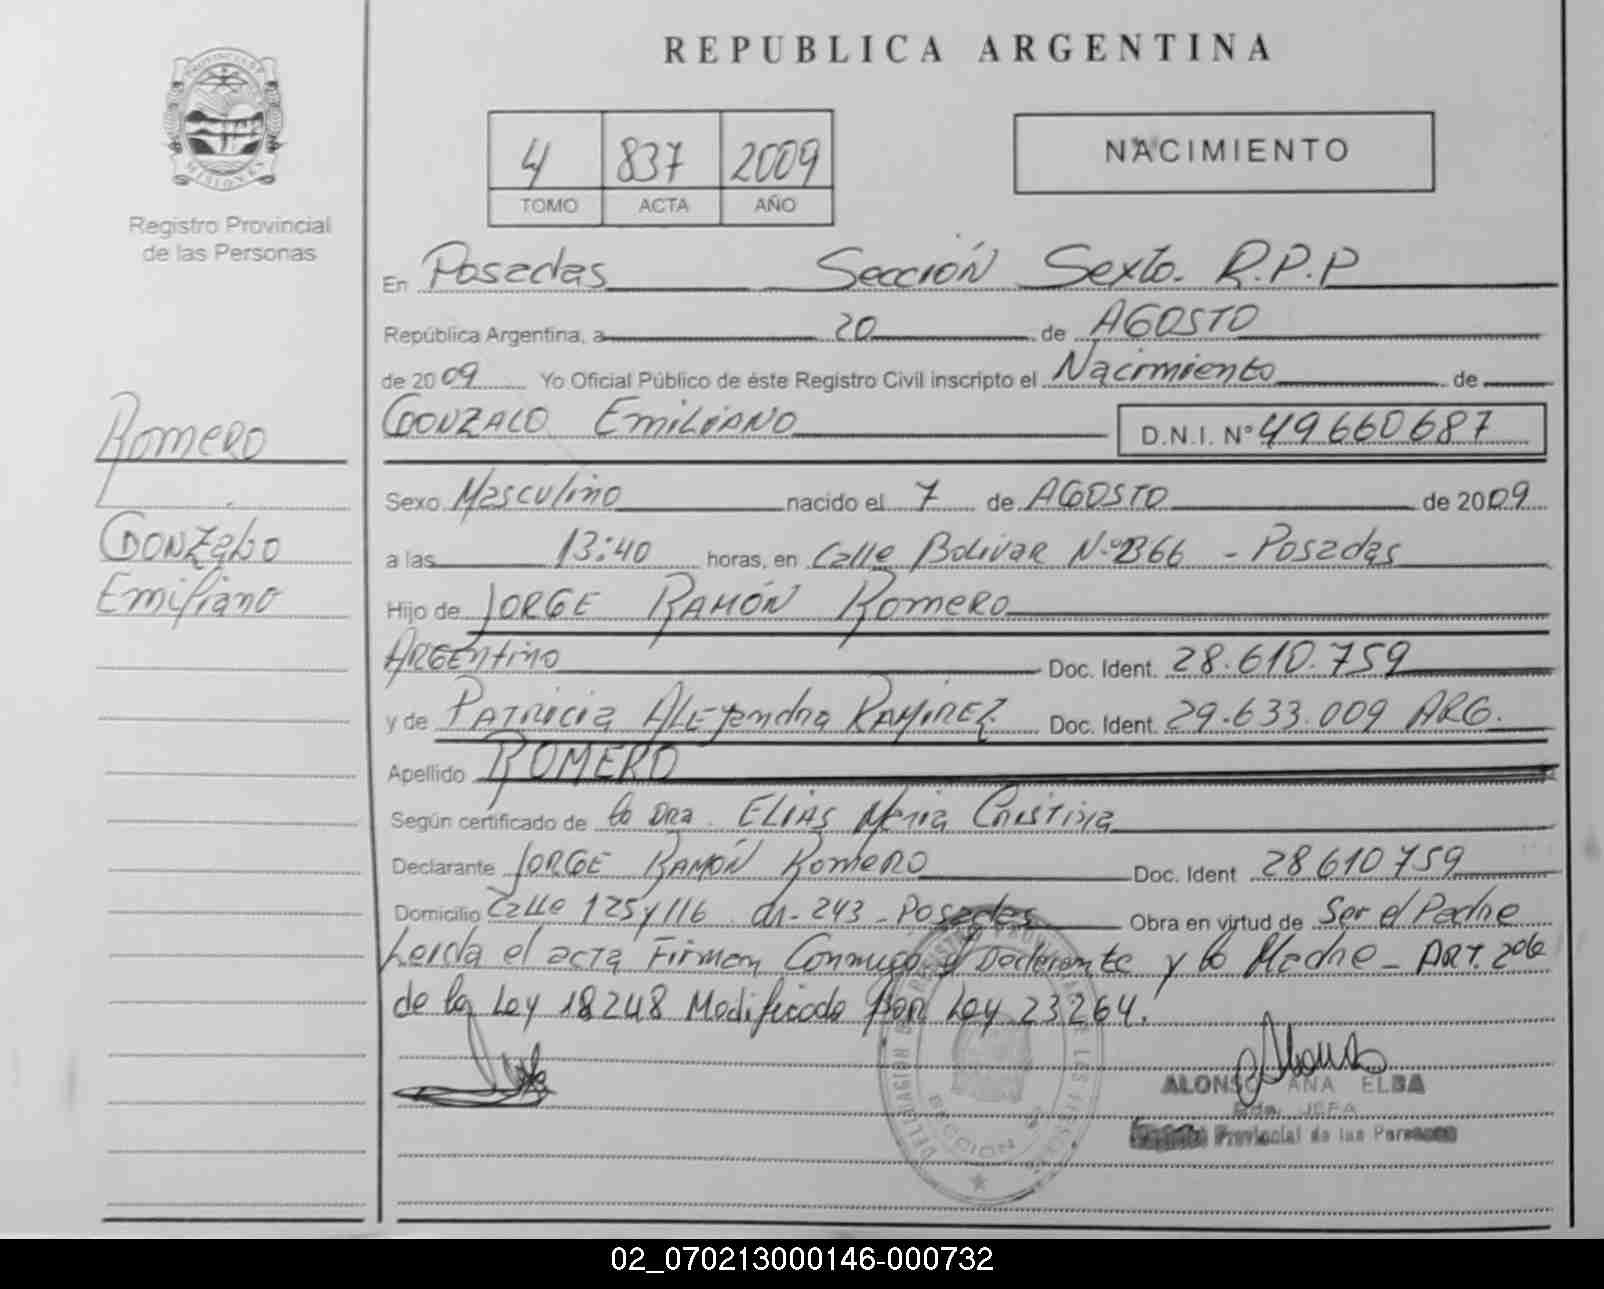 REPUBLICA ARGENTINA
PROVINCIA DE
MISIONES
Registro Provincial
de las Personas
4 837 2009
TOMO ACTA AÑO
NACIMIENTO
En Posadas Sección Sexto. R.P.P
República Argentina, a 20 de AGOSTO
de 2009 Yo Oficial Público de éste Registro Civil inscripto el Nacimiento de
GONZALO EMILIANO D.N.I. Nº 49660687
Romero
Gonzalo
Emiliano
Sexo Masculino nacido el 7 de AGOSTO de 2009
a las 13:40 horas, en Calle Bolivar N.º 2366 - Posadas
Hijo de JORGE RAMÓN Romero
ARGEntino Doc. Ident. 28.610.759
y de PATRICIA ALEJANDRA RAMIREZ Doc. Ident. 29.633.009 ARG.
Apellido ROMERO
Según certificado de la DRA. ELIAS María Cristina
Declarante JORGE RAMÓN Romero Doc. Ident 28610759
Domicilio Calle 125 y 116 243 - Posadas Obra en virtud de Ser el Padre
Leida el acta Firman Conmigo el Declarante y la Madre - ART. 2do
de la Ley 18248 Modificado por Ley 23264.
ALONSO ANA ELBA
JEFA
Provincial de las Personas
02_070213000146-000732